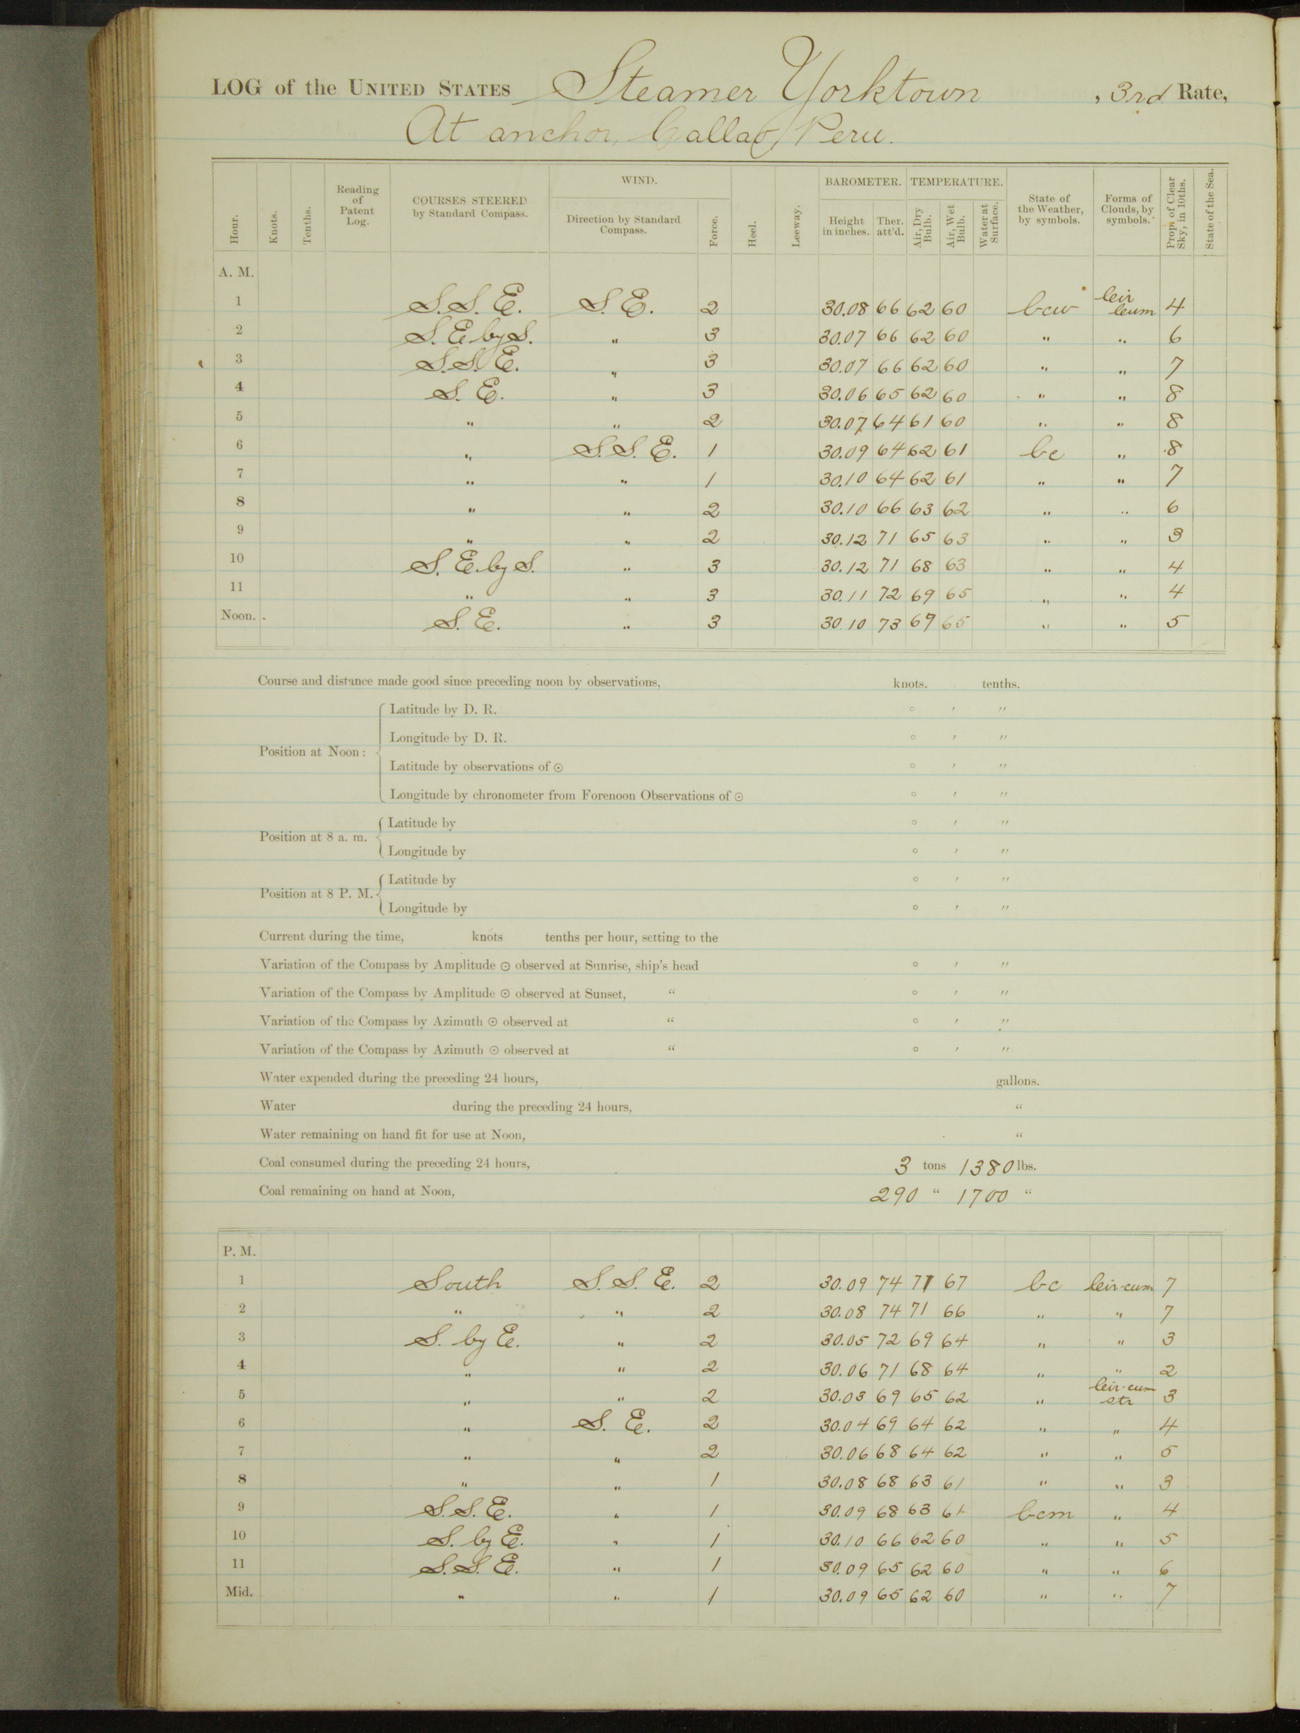 LOG of the UNITED STATES Steamer Yorktown, 3rd Rate,
At anchor, Callao, Peru.
Hour. Knots. Tenths. Reading of Patent Log. COURSES STEERED by Standard Compass. WIND. Direction by Standard Compass. Force. Heel. Leeway. BAROMETER. Height in inches. Ther. att'd. TEMPERATURE. Air, Dry Bulb. Air, Wet Bulb. Water at Surface. State of the Weather, by symbols. Forms of Clouds, by symbols. Props of Clear Sky, in 10ths. State of the Sea.
A. M.
1 S. S. E. S. E. 2 30.08 66 62 60 bcw Cir Cum 4
2 S. E. by S. " 3 30.07 66 62 60 " " 6
3 S. S. E. " 3 30.07 66 62 60 " " 7
4 S. E. " 3 30.06 65 62 60 " " 8
5 " " 2 30.07 64 61 60 " " 8
6 " S. S. E. 1 30.09 64 62 61 bc " 8
7 " " 1 30.10 64 62 61 " " 7
8 " " 2 30.10 66 63 62 " " 6
9 " " 2 30.12 71 65 63 " " 3
10 S. E. by S. " 3 30.12 71 68 63 " " 4
11 " " 3 30.11 72 69 65 " " 4
Noon. S. E. " 3 30.10 73 69 65 " " 5
Course and distance made good since preceding noon by observations, knots. tenths.
Position at Noon:
Latitude by D. R. ° ′ ″
Longitude by D. R. ° ′ ″
Latitude by observations of ☉ ° ′ ″
Longitude by chronometer from Forenoon Observations of ☉ ° ′ ″
Position at 8 a. m.
Latitude by ° ′ ″
Longitude by ° ′ ″
Position at 8 P. M.
Latitude by ° ′ ″
Longitude by ° ′ ″
Current during the time, knots tenths per hour, setting to the
Variation of the Compass by Amplitude ☉ observed at Sunrise, ship's head ° ′ ″
Variation of the Compass by Amplitude ☉ observed at Sunset, " ° ′ ″
Variation of the Compass by Azimuth ☉ observed at " ° ′ ″
Variation of the Compass by Azimuth ☉ observed at " ° ′ ″
Water expended during the preceding 24 hours, gallons.
Water during the preceding 24 hours, "
Water remaining on hand fit for use at Noon, "
Coal consumed during the preceding 24 hours, 3 tons 1380 lbs.
Coal remaining on hand at Noon, 290 " 1700 "
P. M.
1 South S. S. E. 2 30.09 74 71 67 bc Cir-cum 7
2 " " 2 30.08 74 71 66 " " 7
3 S. by E. " 2 30.05 72 69 64 " " 3
4 " " 2 30.06 71 68 64 " " 2
5 " " 2 30.03 69 65 62 " Cir-cum str 3
6 " S. E. 2 30.04 69 64 62 " " 4
7 " " 2 30.06 68 64 62 " " 5
8 " " 1 30.08 68 63 61 " " 3
9 S. S. E. " 1 30.09 68 63 61 bcm " 4
10 S. by E. " 1 30.10 66 62 60 " " 5
11 S. S. E. " 1 30.09 65 62 60 " " 6
Mid. " " 1 30.09 65 62 60 " " 7